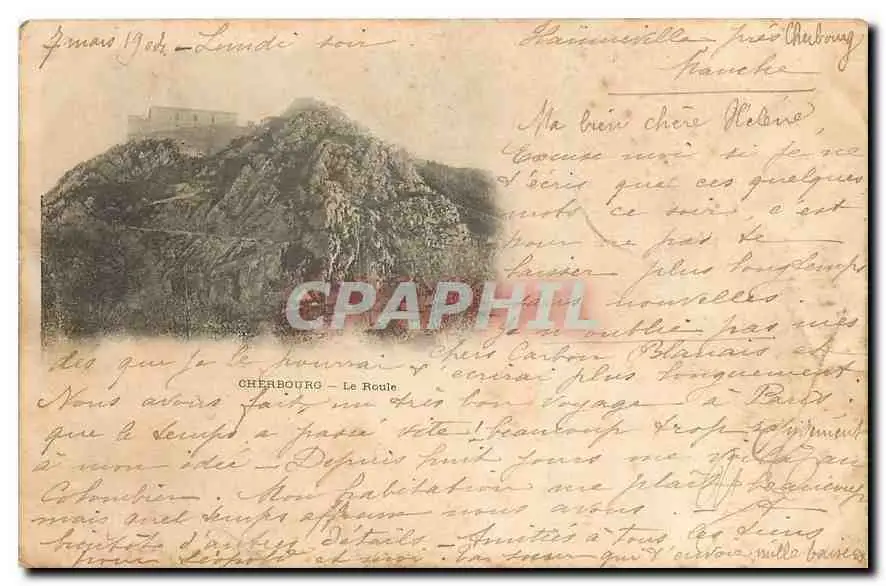 7 mars 1904 - Lundi soir.
Hainneville près Cherbourg
Manche
Ma bien chère Hélène,
Excuse moi si je ne
t'écris que ces quelques
mots ce soir, c'est
pour ne pas te
laisser plus longtemps
sans nouvelles.
J'en oublie pas mes
chers Carbon Blanais et
dès que je le pourrai
t'écrirai plus longuement.
CHERBOURG - Le Roule
Nous avons fait un très bon voyage à Paris.
que le temps a passé vite! beaucoup trop
à mon idée - Depuis huit jours me voilà au
Colombier. Mon habitation me plaît
mais quel temps affreux nous avons.
bientôt d'autres détails - Amitiés à tous les tiens
pour Léopold et moi. ta soeur qui t'envoie mille baisers
CPAPHIL